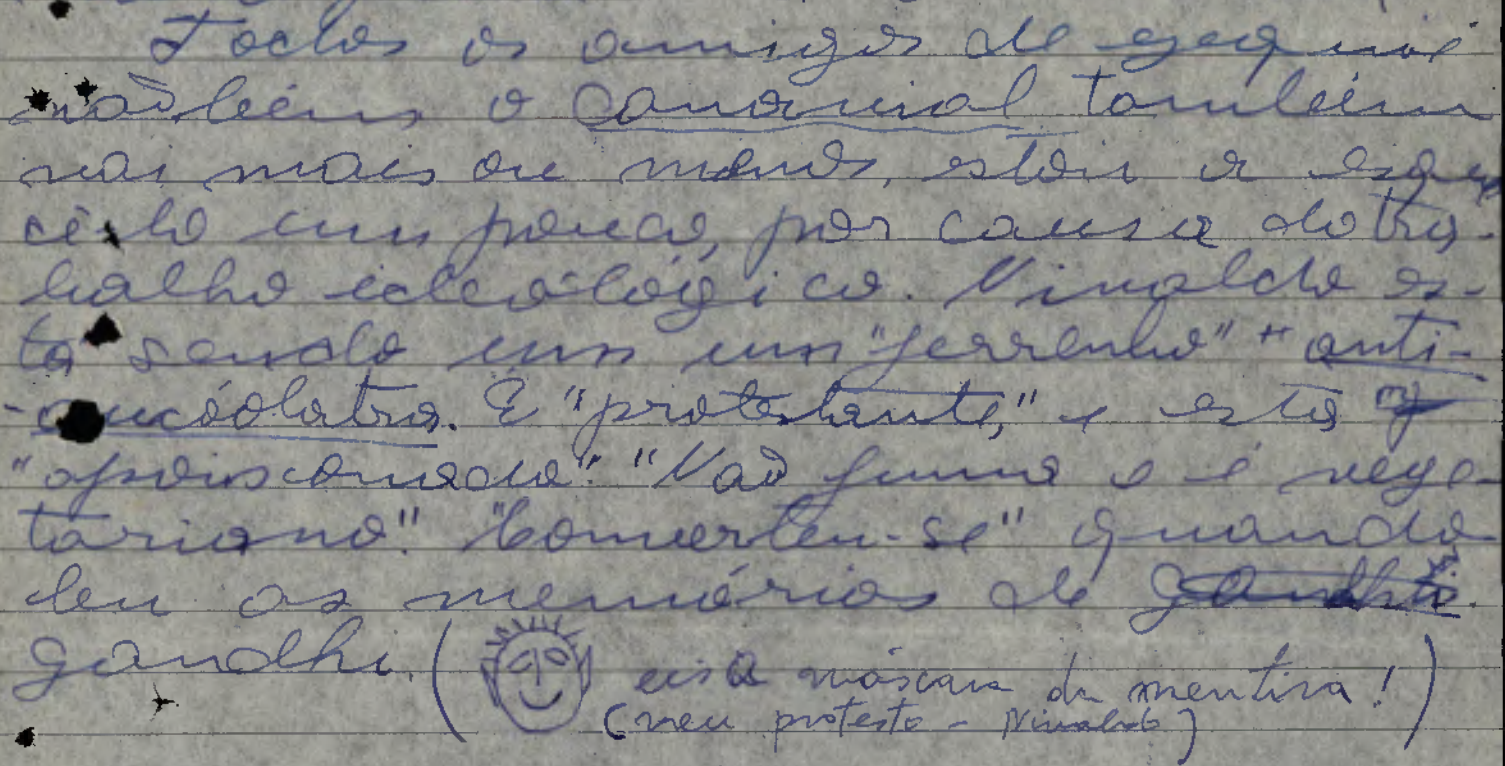 Todos os amigos de
vão bem, o Canavial também
vai mais ou menos, estou a esque
cê-lo um pouco, por causa do tra-
balho ideológico. Ninaldo es-
tá sendo um um "ferrenho" + anti-
E "protestante," e está
"apaixonado". "Não fuma e é vege-
tariano". "Converteu-se" quando
leu as memórias de
Gandhi. ( eis a máscara da mentira! )
(meu protesto - Ninaldo)